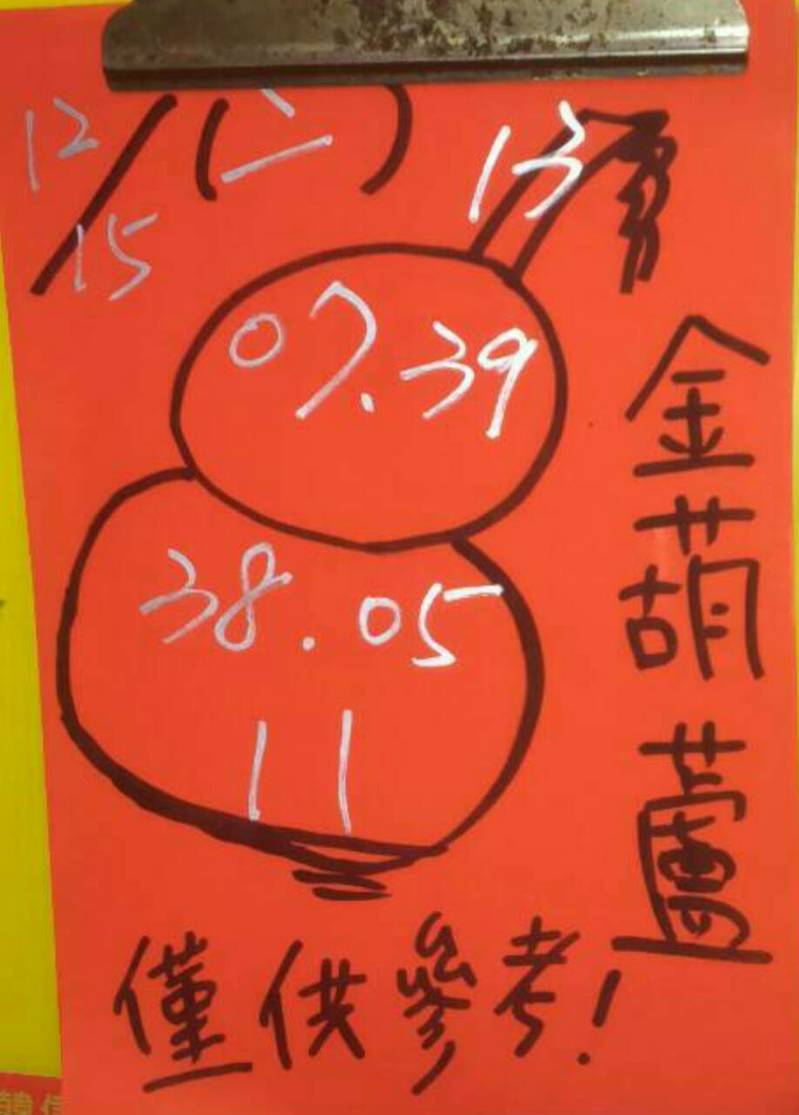 12/15 (二)
13
07.39
38.05
11
金葫蘆
僅供參考!